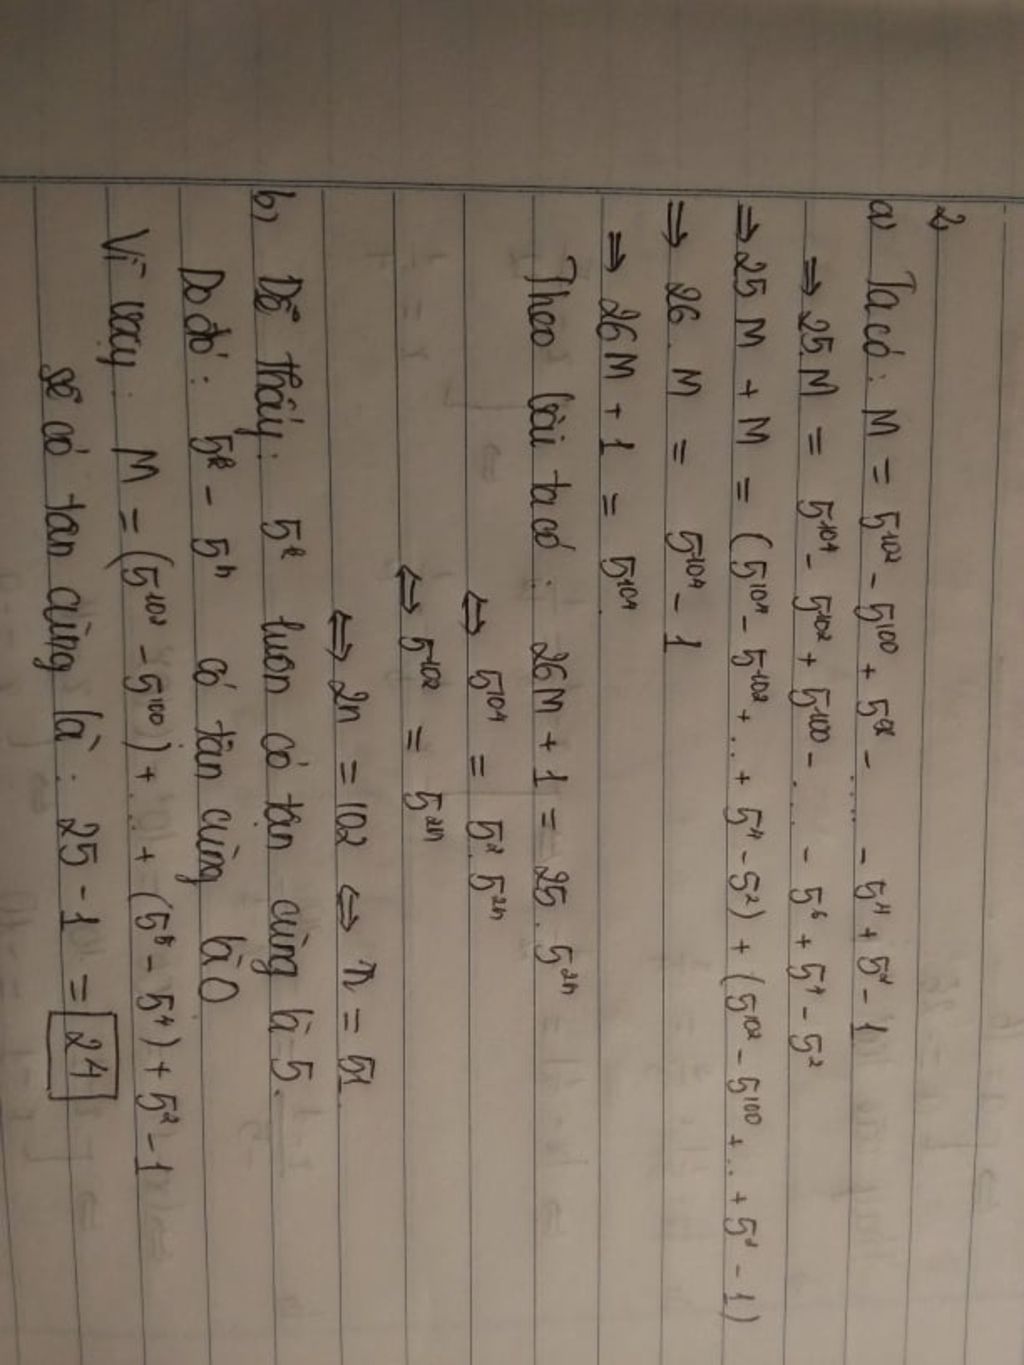 2,
a, Ta có: M = 5¹⁰² - 5¹⁰⁰ + 5⁹⁸ - ..... - 5⁴ + 5² - 1
⇒ 25.M = 5¹⁰⁴ - 5¹⁰² + 5¹⁰⁰ - ..... - 5⁶ + 5⁴ - 5²
⇒ 25M + M = (5¹⁰⁴ - 5¹⁰² + ... + 5⁴ - 5²) + (5¹⁰² - 5¹⁰⁰ + ... + 5² - 1)
⇒ 26.M = 5¹⁰⁴ - 1
⇒ 26M + 1 = 5¹⁰⁴
Theo bài ta có: 26M + 1 = 25.5²ⁿ
⇔ 5¹⁰⁴ = 5².5²ⁿ
⇔ 5¹⁰² = 5²ⁿ
⇔ 2n = 102 ⇔ n = 51.
b, Dễ thấy: 5ᵏ luôn có tận cùng là 5.
Do đó: 5ᵏ - 5ⁿ có tận cùng là 0
Vì vậy: M = (5¹⁰² - 5¹⁰⁰) + ... + (5⁶ - 5⁴) + 5² - 1
sẽ có tận cùng là: 25 - 1 = 24